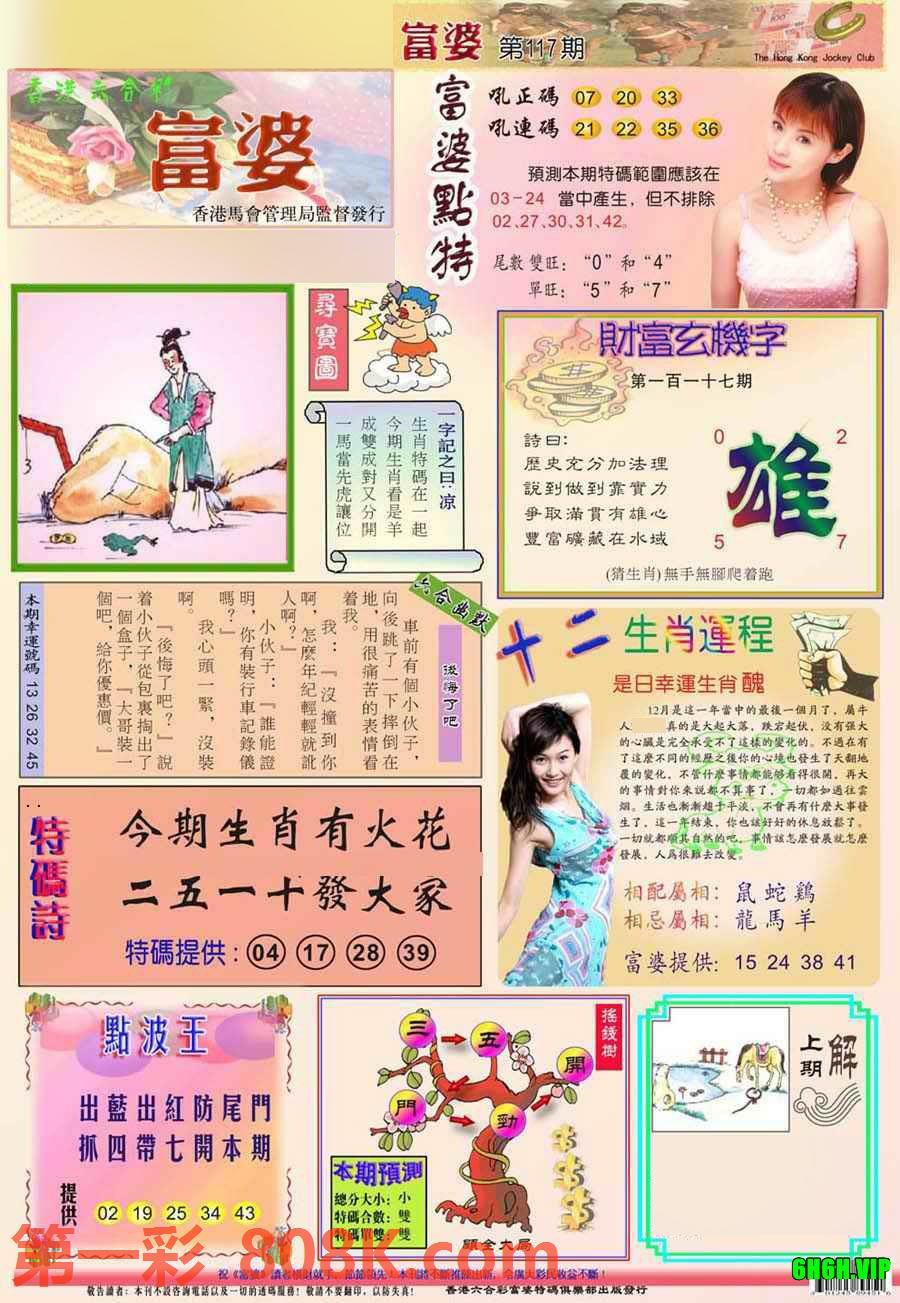 富婆 第117期
The Hong Kong Jockey Club
香港六合彩
富婆
香港馬會管理局監督發行
富婆點特
吼正碼 07 20 33
吼連碼 21 22 35 36
預測本期特碼範圍應該在
03-24 當中產生，但不排除
02、27、30、31、42。
尾數雙旺：“0”和“4”
單旺：“5”和“7”
尋寶圖
一字記之曰：涼
生肖特碼在一起
今期生肖看是羊
成雙成對又分開
一馬當先虎讓位
財富玄機字
第一百一十七期
詩曰:
歷史充分加法理
說到做到靠實力
爭取滿貫有雄心
豐富礦藏在水域
0 2
雄
5 7
(猜生肖)無手無腳爬着跑
六合幽默
後悔了吧
車前有個小伙子，
向後跳了一下摔倒在
地，用很痛苦的表情看
着我。
我：『沒撞到你
啊，怎麼年紀輕輕就訛
人啊？』
小伙子：『誰能證
明，你有裝行車記錄儀
嗎？』
我心頭一緊，沒裝
啊。
『後悔了吧？』說
着小伙子從包裹掏出了
一個盒子，『大哥裝一
個吧，給你優惠價。』
本期幸運號碼 13 26 32 45
十二生肖運程
是日幸運生肖醜
12月是這一年當中的最後一個月了，屬牛
人 真的是大起大落，跌宕起伏，没有强大
的心臟是完全承受不了這樣的變化的。不過在有
了這麽不同的經歷之後你的心境也發生了天翻地
覆的變化，不管什麽事情都能够看得很開，再大
的事情對你來説都不算事了，一切都如過往雲
烟。生活也漸漸趨于平淡，不會再有什麽大事發
生了，這一年結束，你也該好好的休息放鬆了。
一切就都順其自然的吧，事情該怎麽發展就怎麽
發展，人爲很難去改變。
相配屬相：鼠蛇鷄
相忌屬相：龍馬羊
富婆提供：15 24 38 41
特碼詩
今期生肖有火花
二五一十發大家
特碼提供：04 17 28 39
點波王
出藍出紅防尾門
抓四帶七開本期
提供 02 19 25 34 43
搖錢樹
三 五 開
門 勁
本期預測
總分大小：小
特碼合數：雙
特碼單雙：雙
顧全大局
上期解
第一彩 808K.com
6H6H.VIP
祝《富婆》讀者橫財就手，節節領先！本刊將不斷推陳出新，令廣大彩民收益不斷！
敬告讀者：本刊不設咨詢電話以及一切的透碼服務！敬請不要翻印，以防失真！
香港六合彩富婆特碼俱樂部出版發行